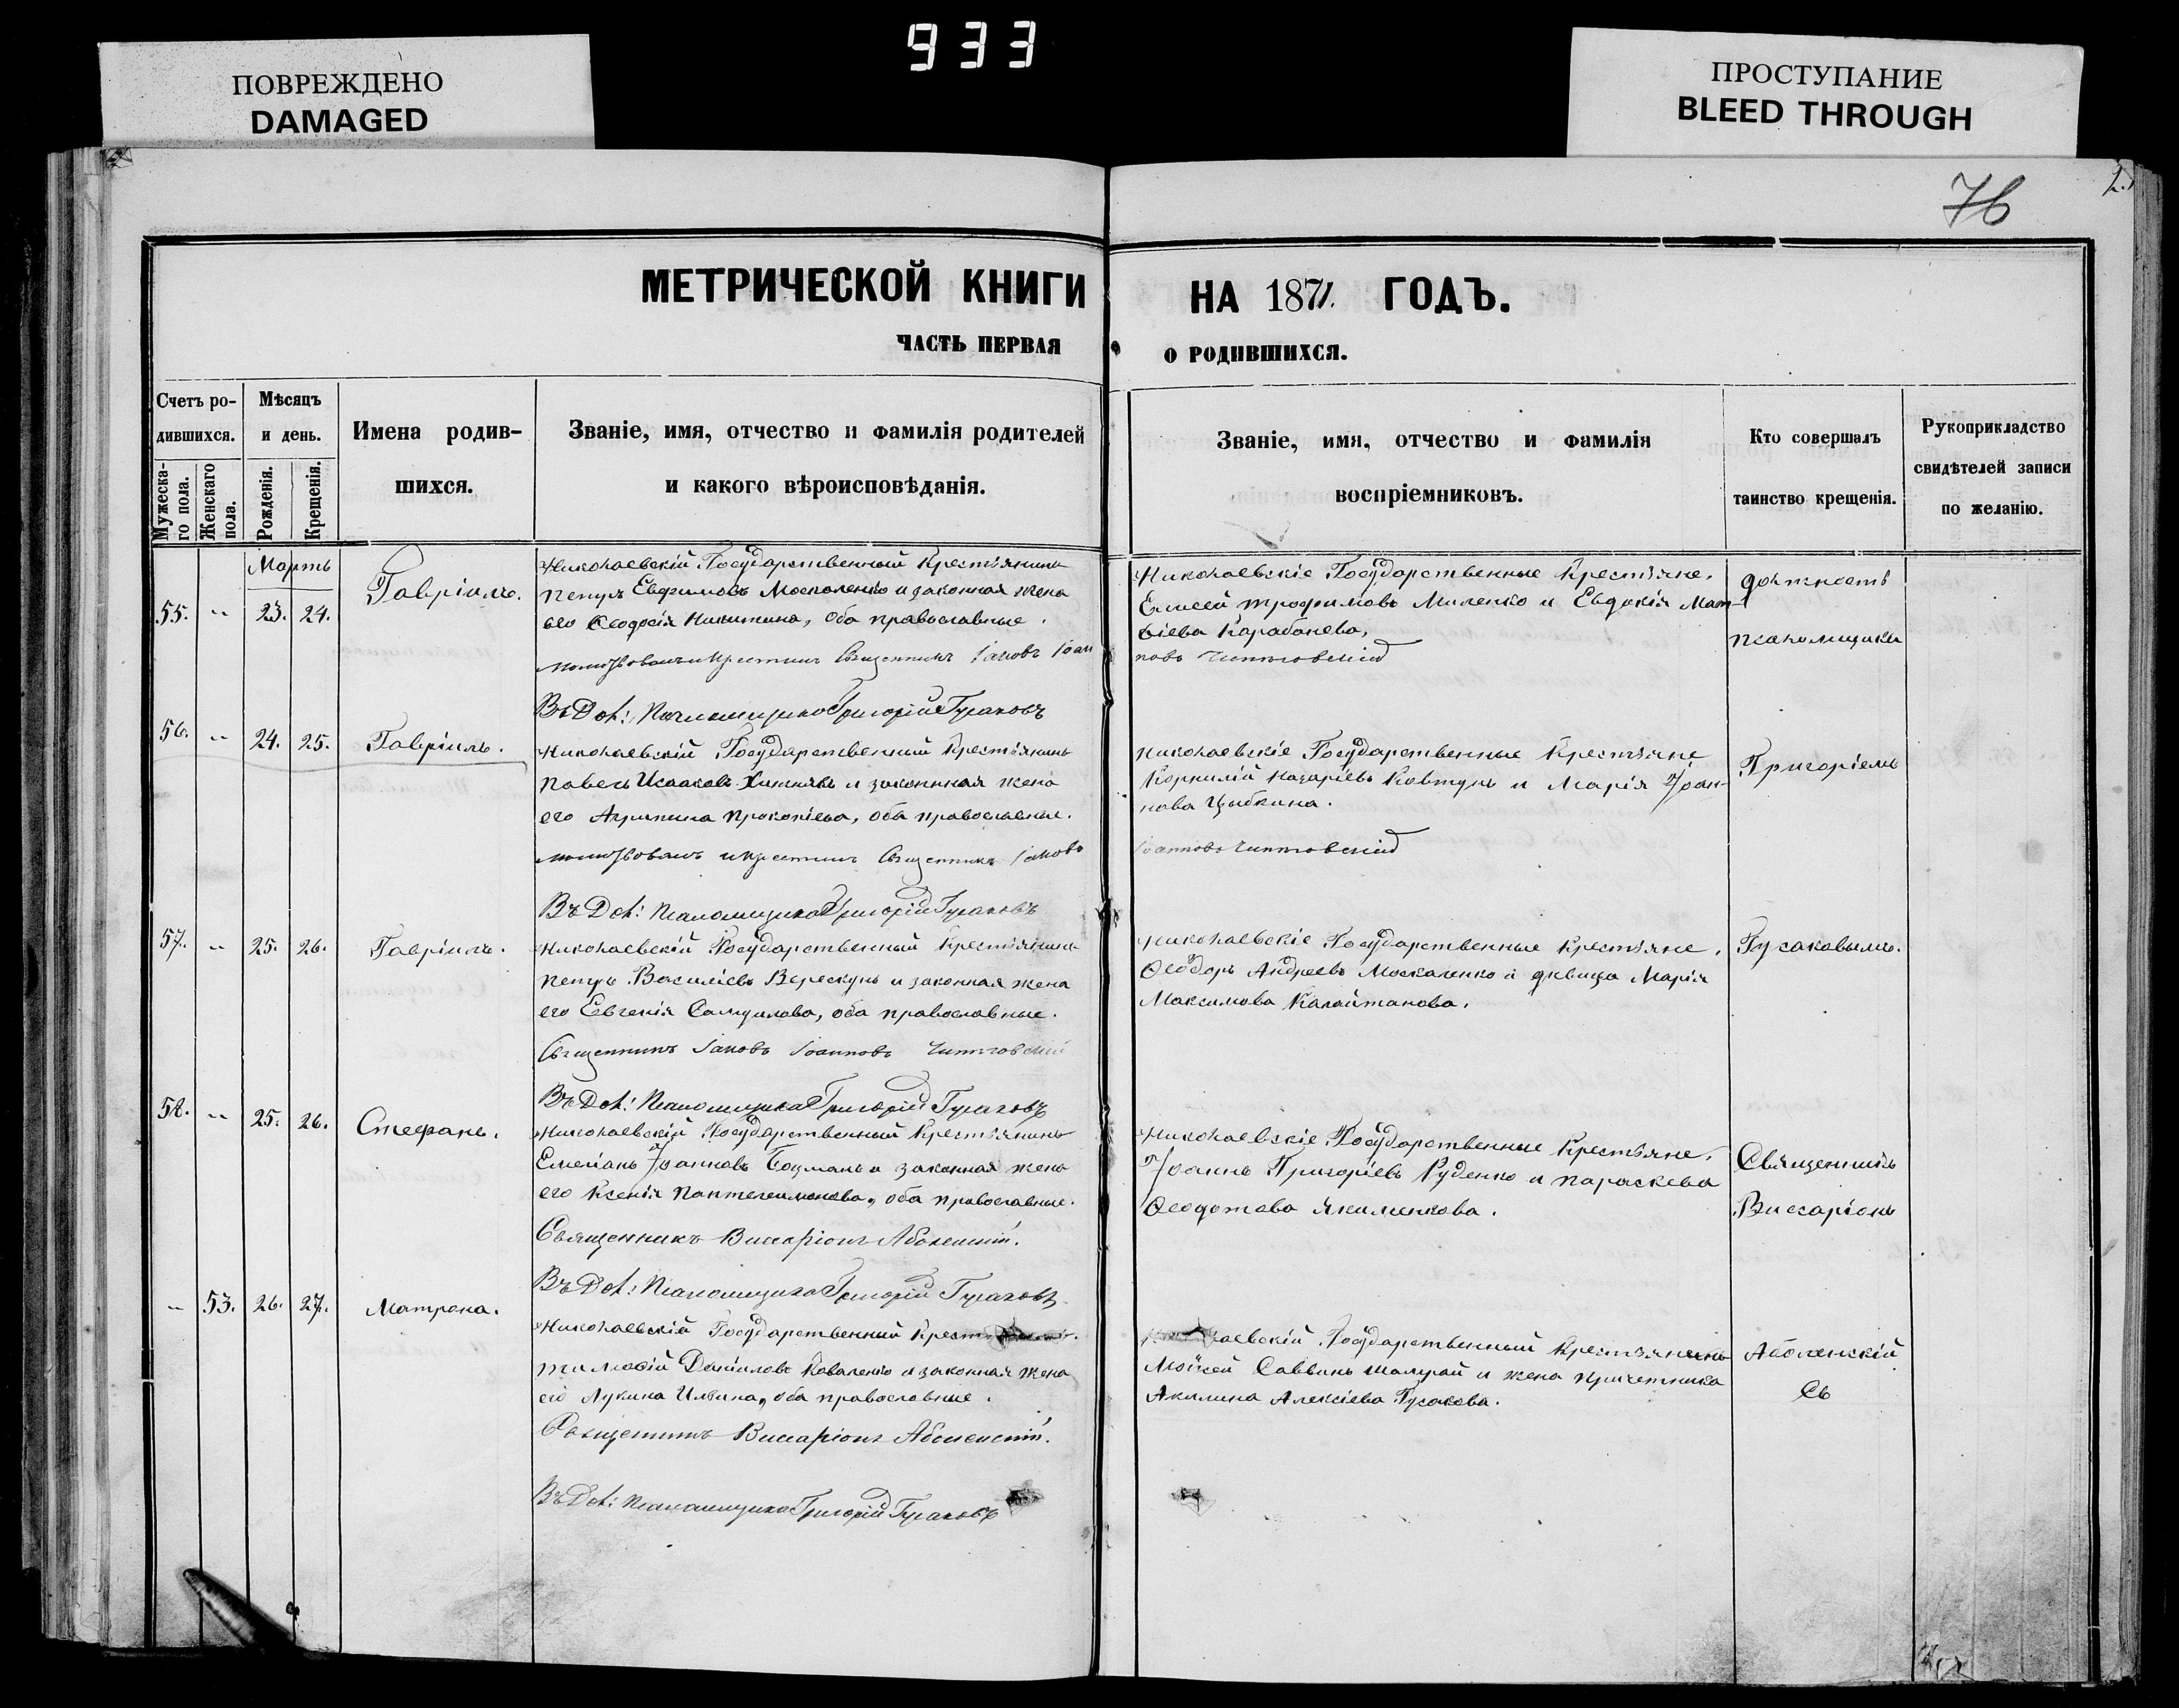 933
ПОВРЕЖДЕНО
DAMAGED
ПРОСТУПАНИЕ
BLEED THROUGH
76
2.
МЕТРИЧЕСКОЙ КНИГИ НА 1871. ГОДЪ.
ЧАСТЬ ПЕРВАЯ О РОДИВШИХСЯ.
Счетъ ро-
дившихся.
Мужеска-
го пола.
Женскаго
пола.
Мѣсяцъ
и день.
Рожденія.
Крещенія.
Имена родив-
шихся.
Званіе, имя, отчество и фамилія родителей
и какого вѣроисповѣданія.
Званіе, имя, отчество и фамилія
воспріемниковъ.
Кто совершалъ
таинство крещенія.
Рукоприкладство
свидѣтелей записи
по желанію.
Мартъ
55. „ 23. 24.
Гавріилъ.
Николаевскій Государственный Крестьянинъ
Петръ Евфимовъ Москаленко и законная жена
его Ѳеодосія Никитина, оба православные.
Молитвовалъ и крестилъ Священникъ Іаковъ Іоан
Николаевскіе Государственные Крестьяне,
Елисей Трофимовъ Миленко и Евдокія Мат-
ѳіева Карабанева,
новъ
должность
псаломщика
Въ Дол: Псаломщика Григорій Гусаковъ
56. „ 24. 25.
Гавріилъ.
Николаевскій Государственный Крестьянинъ
Павелъ Исааковъ и законная жена
его Агрипина Прокопіева, оба православные.
Молитвовалъ и крестилъ Священникъ Іаковъ
Николаевскіе Государственные Крестьяне
Корнилій Назаріевъ Ковтунъ и Марія Іоан-
нова Цыбкина.
Іоанновъ
Григоріемъ
Въ Дол: Псаломщика Григорій Гусаковъ
57. „ 25. 26.
Гавріилъ.
Николаевскій Государственный Крестьянинъ
Петръ Василіевъ Верескунъ и законная жена
его Евгенія Самуилова, оба православные.
Священникъ Іаковъ Іоанновъ
Николаевскіе Государственные Крестьяне,
Ѳеодоръ Андреевъ Москаленко и дѣвица Марія
Максимова Калайтанова.
Гусаковымъ.
Въ Дол: Псаломщика Григорій Гусаковъ
58. „ 25. 26.
Стефанъ.
Николаевскій Государственный Крестьянинъ
Емеліанъ Іоанновъ Боцманъ и законная жена
его Ксенія Пантелеимонова, оба православные.
Священникъ Виссаріонъ Аболенскій.
Николаевскіе Государственные Крестьяне,
Іоаннъ Григоріевъ Руденко и Параскева
Ѳеодотова Якименкова.
Священникъ
Виссаріонъ
Въ Дол: Псаломщика Григорій Гусаковъ
„ 53. 26. 27.
Матрона.
Николаевскій Государственный
Тимоѳій Даніиловъ Коваленко и законная жена
его Лукина Ильина, оба православные.
Священникъ Виссаріонъ Аболенскій.
Государственный Крестьянинъ
Моѵсей Саввинъ Шамрай и жена причетника
Акилина Алексіева Гусакова.
Аболенскій
Съ
Въ Дол: Псаломщика Григорій Гусаковъ